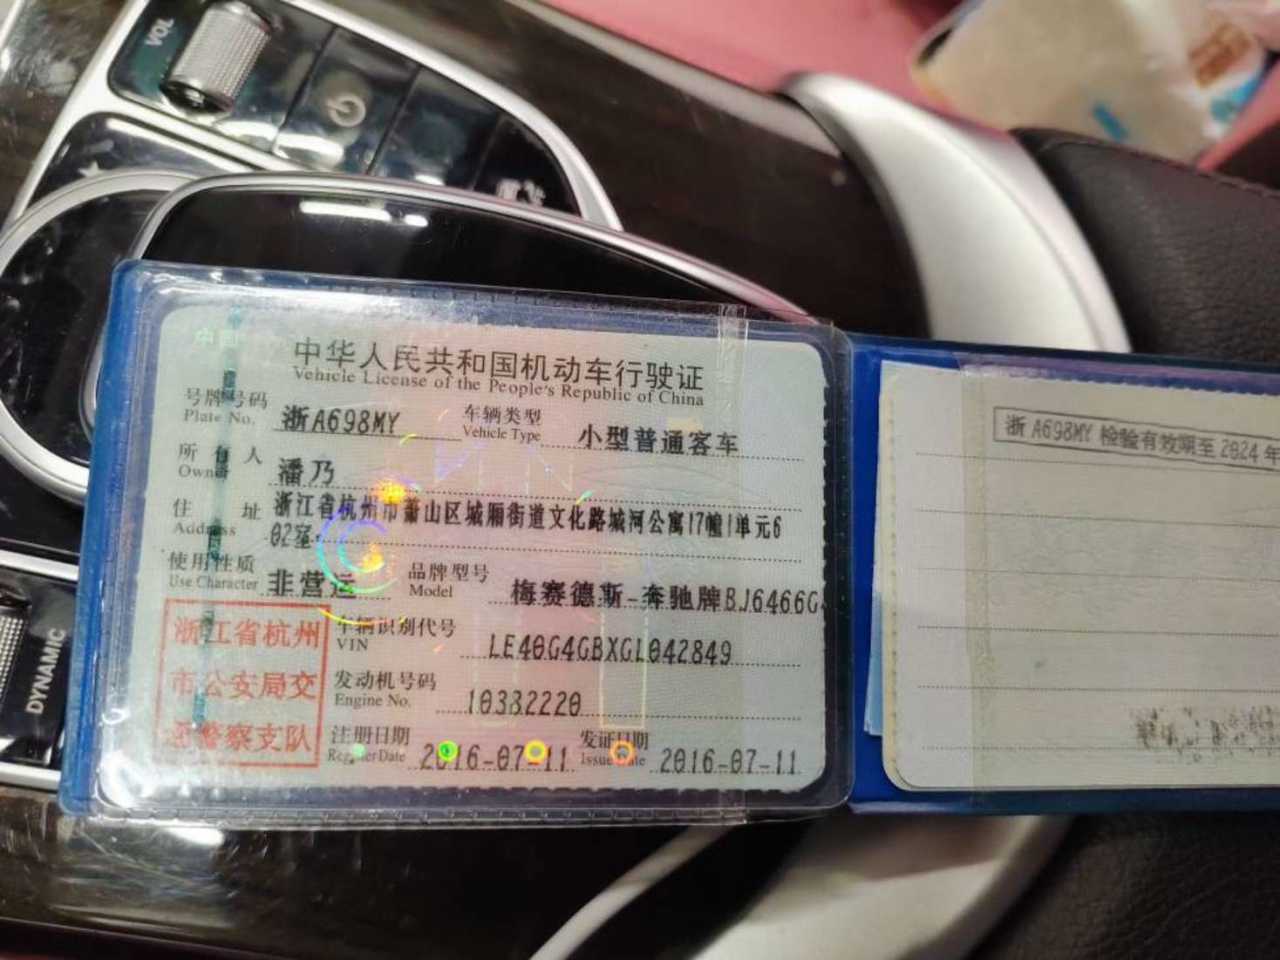 VOL
中华人民共和国机动车行驶证
Vehicle License of the People's Republic of China
号牌号码 浙A698MY 车辆类型 小型普通客车
Plate No. Vehicle Type
所有人 潘乃
Owner
住址 浙江省杭州市萧山区城厢街道文化路城河公寓17幢1单元6
Address 02室
使用性质 非营运 品牌型号 梅赛德斯-奔驰牌BJ6466G
Use Character Model
浙江省杭州
市公安局交
通警察支队
车辆识别代号 LE40G4GBXGL042849
VIN
发动机号码 10382220
Engine No.
注册日期 2016-07-11 发证日期 2016-07-11
Register Date Issue Date
浙A698MY 检验有效期至 2024 年
DYNAMIC